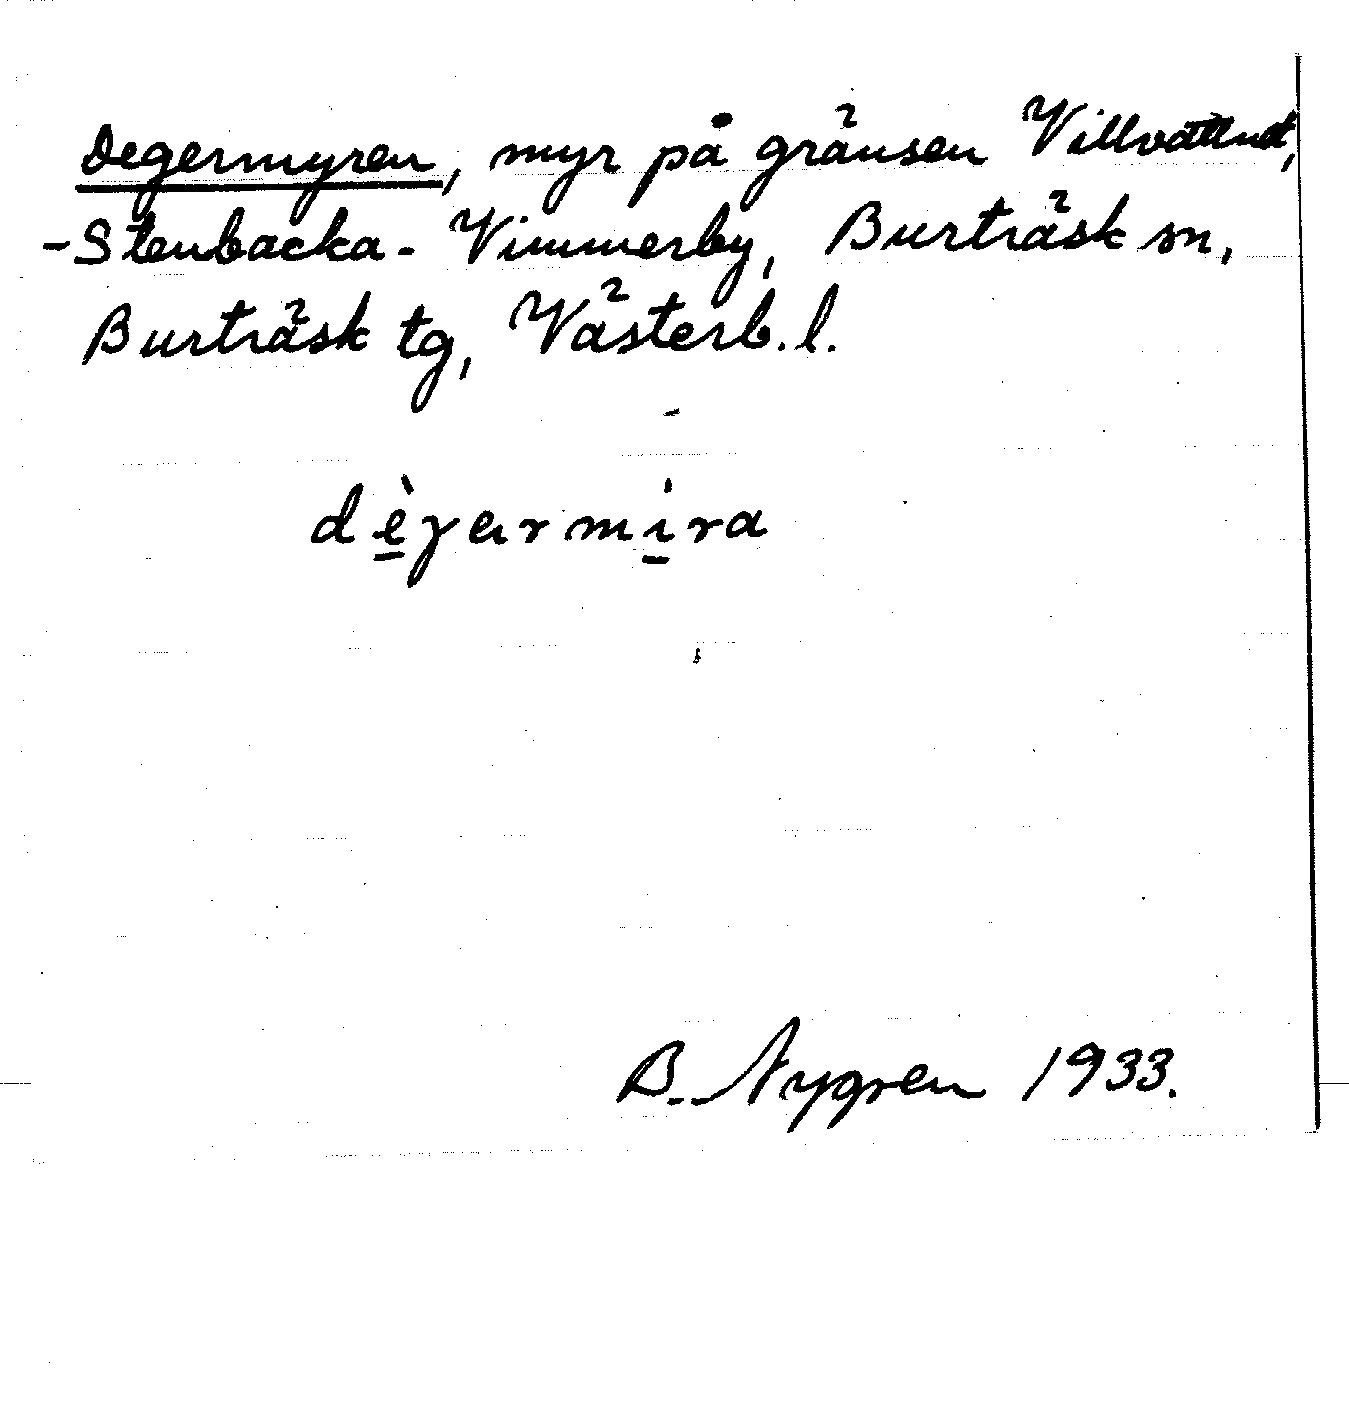 Degermyren, myr på gränsen Villvattnet,
-Stenbacka- Vimmerby, Burträsk sn,
Burträsk tg, Västerb. l.
dè̱γarmi̱ra
B. Nygren 1933.